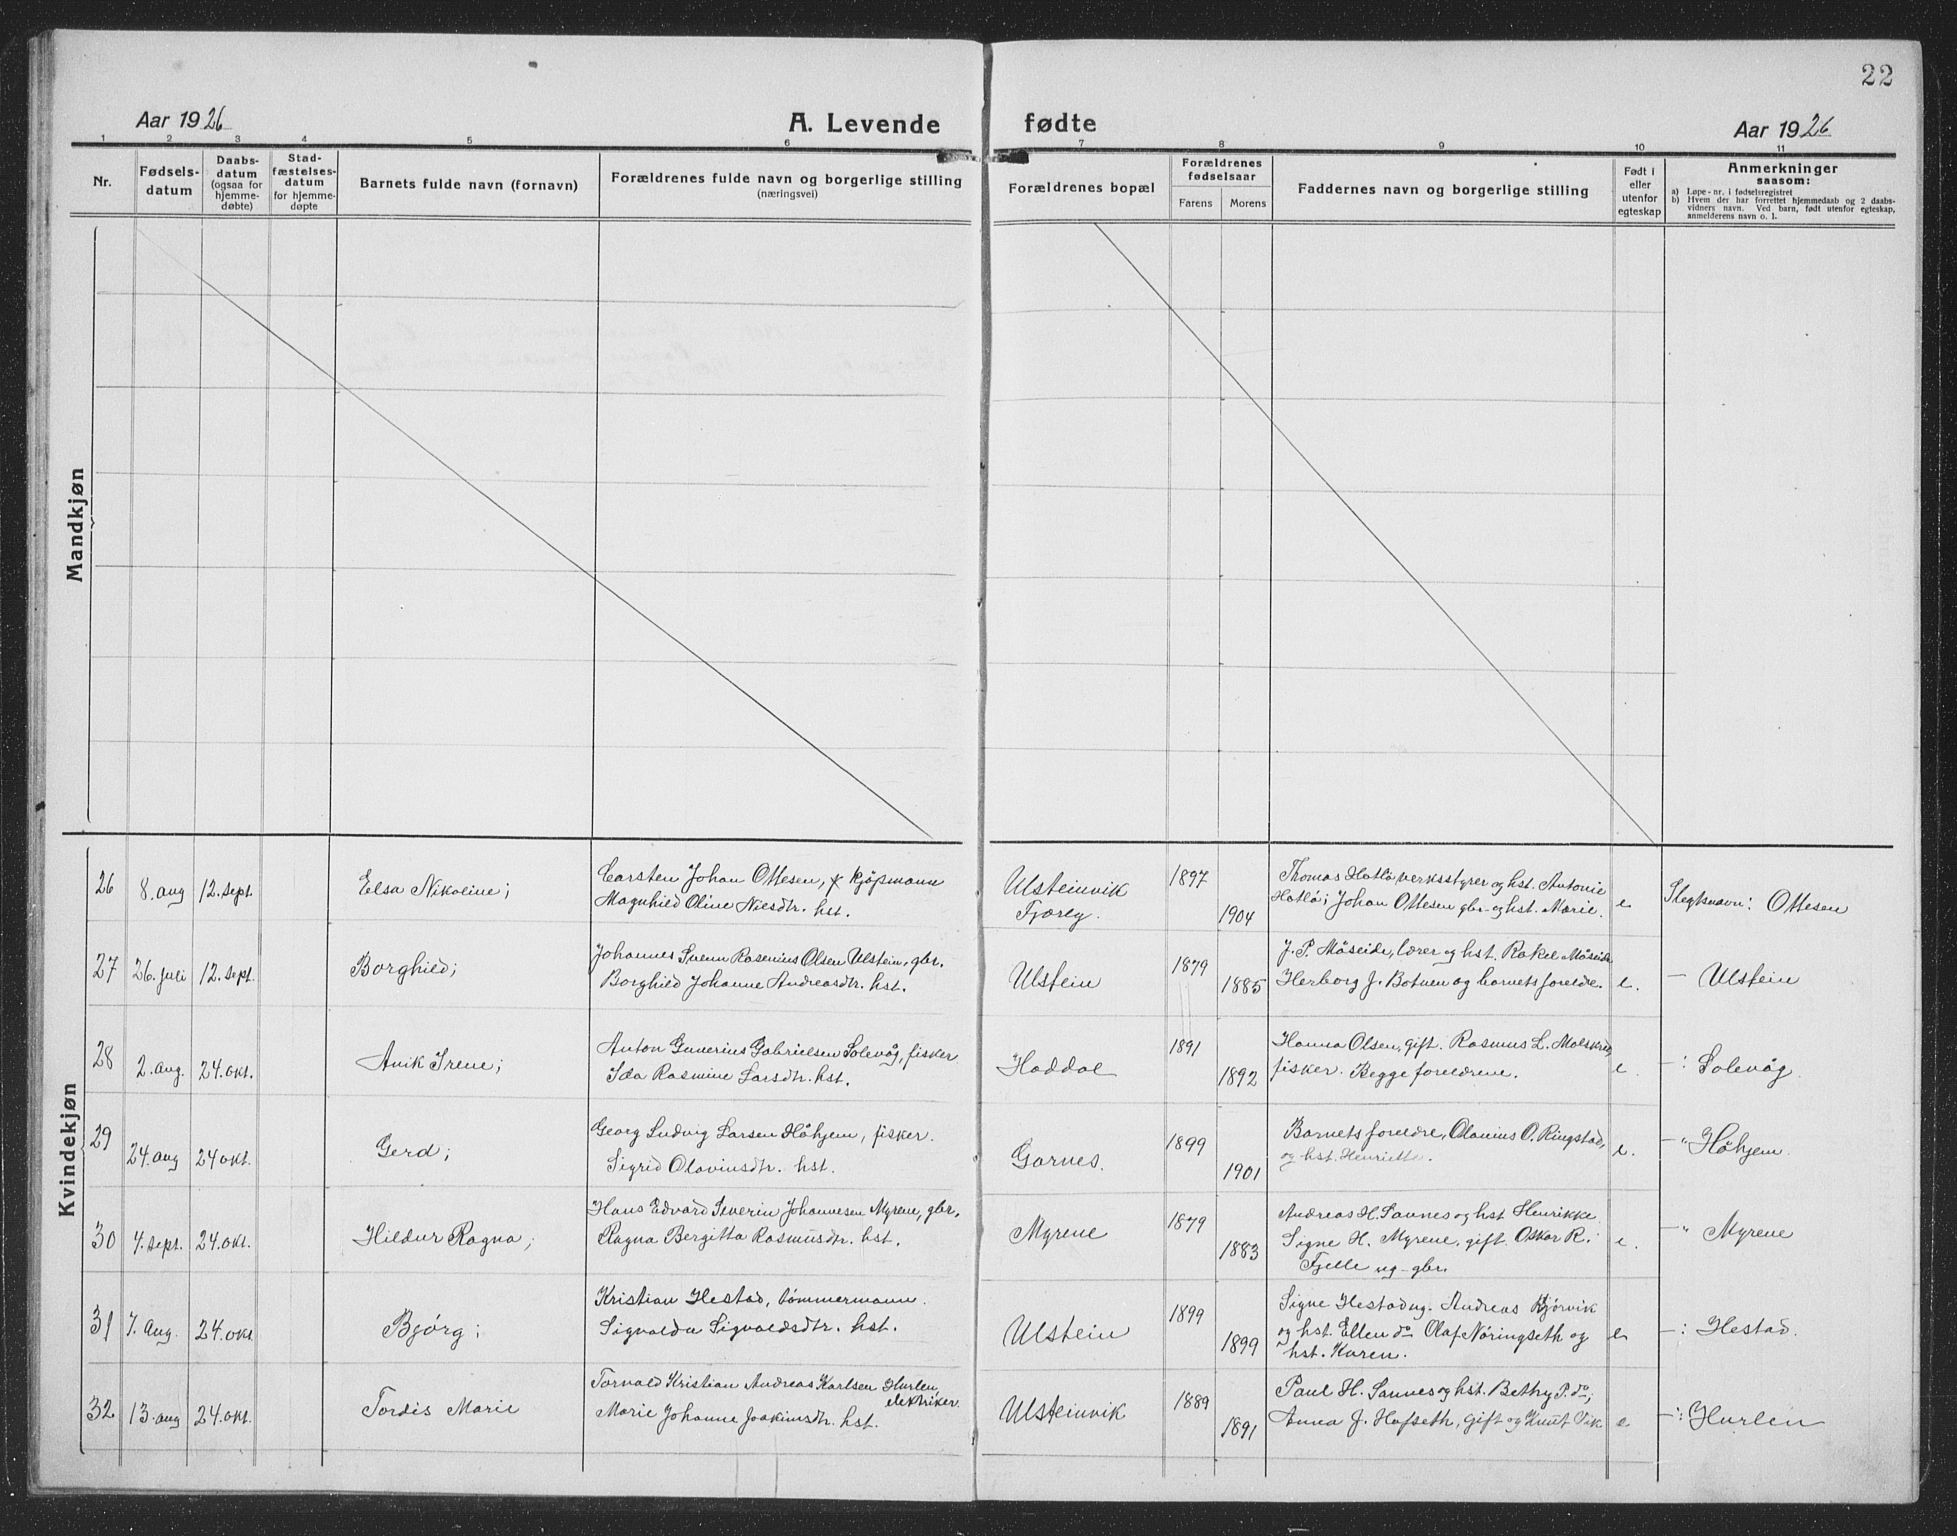 22
Aar 1926
A. Levende fødte
Aar 1926
1 2 3 4 5 6 7 8 9 10 11
Nr.
Fødsels-
datum
Daabs-
datum
(ogsaa for
hjemme-
døbte)
Stad-
fæstelses-
datum
for hjemme-
døpte
Barnets fulde navn (fornavn)
Forældrenes fulde navn og borgerlige stilling
(næringsvei)
Forældrenes bopæl
Forældrenes
fødselsaar
Farens Morens
Faddernes navn og borgerlige stilling
Født i
eller
utenfor
egteskap
Anmerkninger
saasom:
a) Løpe-nr. i fødselsregistret
b) Hvem der har forrettet hjemmedaab og 2 daabs-
vidners navn. Ved barn, født utenfor egteskap,
anmelderens navn o. l.
Mandkjøn
Kvindekjøn
26 8. aug 12. sept. Elsa Nikoline;
Carsten Johan Ottesen, kjøpmann
Magnhild Oline Nilsdtr. hst.
Ulsteinvik
Fjærly.
1897
1904
Thomas Hatlö, verksstyrer og hst. Antonie
Hatlö; Johan Ottesen gbr. og hst. Marie.
e
Slegtsnavn: Ottesen
27 26. juli 12. sept. Borghild;
Johannes Svenn Rasenius Olsen Ulstein, gbr.
Borghild Johanne Andreasdtr. hst.
Ulstein
1879
1885
J. P. Måseide, lærer og hst. Rakel Måseide
Herborg J. Botnen og barnets foreldre.
e.
— Ulstein
28 2. aug. 24. okt. Anik Irene;
Anton Gunerius Gabrielsen Solevåg, fisker
Ida Rasmine Larsdtr. hst.
Haddal
1891
1892
Hanna Olsen, gift. Rasmus L. Molskred,
fisker. Begge foreldrene.
e
—: Solevåg
29 24. aug 24 okt. Gerd;
Georg Ludvig Larsen Håhjem, fisker.
Sigrid Olavinsdtr. hst.
Garnes.
1899
1901
Barnets foreldre, Olavius O. Ringstad,
og hst. Henriette.
e.
—" Håhjem
30 4. sept. 24. okt. Hildur Ragna;
Hans Edvard Severin Johannesen Myrene, gbr.
Ragna Bergitta Rasmusdtr. hst.
Myrene
1879
1883
Andreas H. Saunes og hst Henrikke
Signe H. Myrene, gift. Oskar R.
Fjelle ug- gbr.
e.
—" Myrene
31 7. aug. 24. okt Bjørg;
Kristian Hestad, tømmermann.
Sigvalda Sigvaldsdtr. hst.
Ulstein
1899
1899
Signe Hestad ug. Andreas Kjørvik
og hst. Ellen do Olaf Nøringseth og
hst. Karen.
e
—: Hestad.
32 13. aug 24. okt. Tordis Marie
Torvald Kristian Andreas Karlsen Hurlen,
elektriker.
Marie Johanne Joakimsdtr. hst.
Ulsteinvik
1889
1891
Paul H. Saunes og hst. Bethy P. do;
Anna J. Hofseth, gift og Knut Vik
e
—: Hurlen